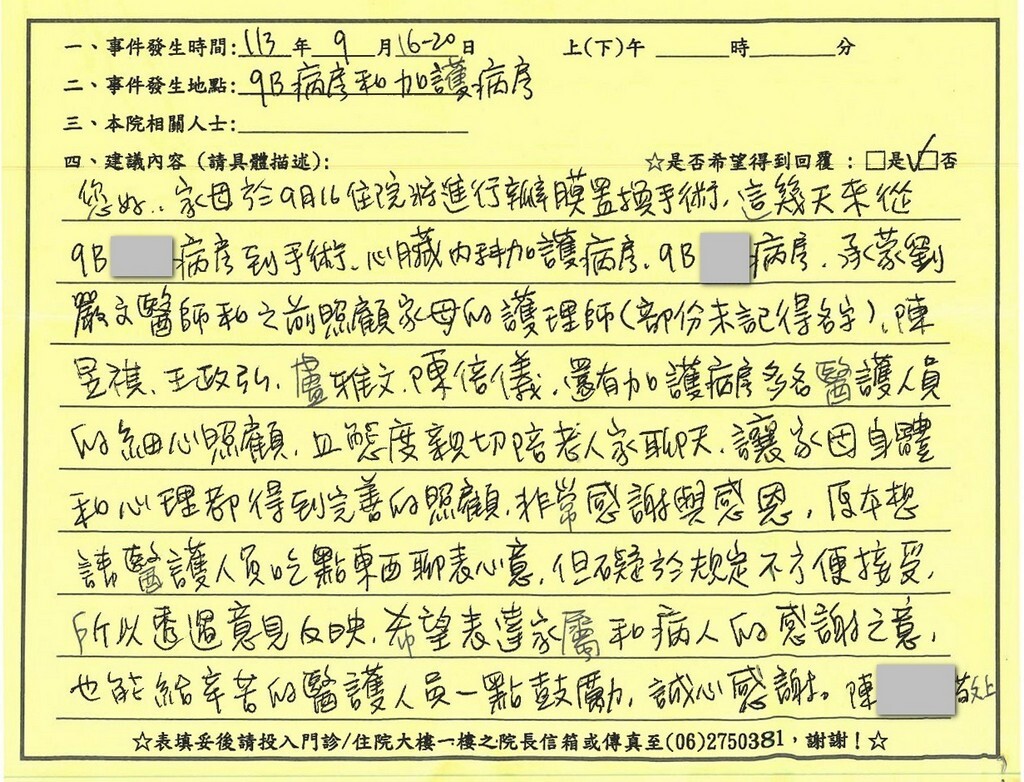 一、事件發生時間:113年9月16-20日 上(下)午____時____分
二、事件發生地點:9B病房和加護病房
三、本院相關人士:
四、建議內容(請具體描述): ☆是否希望得到回覆:□是☑否
您好..家母於9月16住院將進行瓣膜置換手術,這幾天來從
9B 病房到手術、心臟內科加護病房、9B 病房,承蒙劉
嚴文醫師和之前照顧家母的護理師(部份未記得名字)、陳
昱禎、王政弘、盧雅文、陳倍儀,還有加護病房多名醫護人員
的細心照顧,且態度親切陪老人家聊天,讓家母身體
和心理都得到完善的照顧,非常感謝與感恩,原本想
請醫護人員吃點東西聊表心意,但礙於規定不方便接受,
所以透過意見反映,希望表達家屬和病人的感謝之意,
也能給辛苦的醫護人員一點鼓勵,誠心感謝。陳 敬上
☆表填妥後請投入門診/住院大樓一樓之院長信箱或傳真至(06)2750381,謝謝!☆